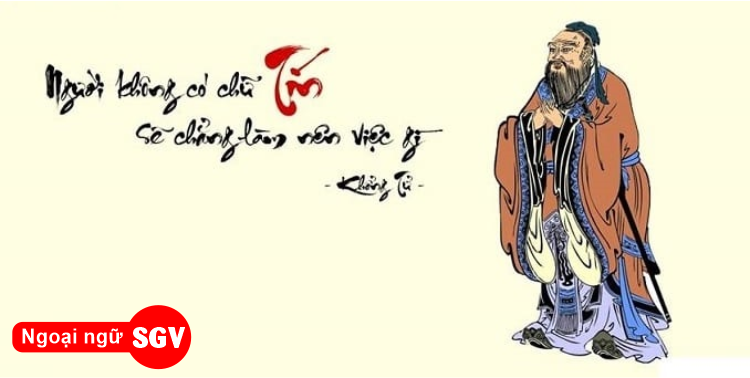 Người không có chữ Tín
sẽ chẳng làm nên việc gì
- Khổng Tử -
Ngoại ngữ SGV